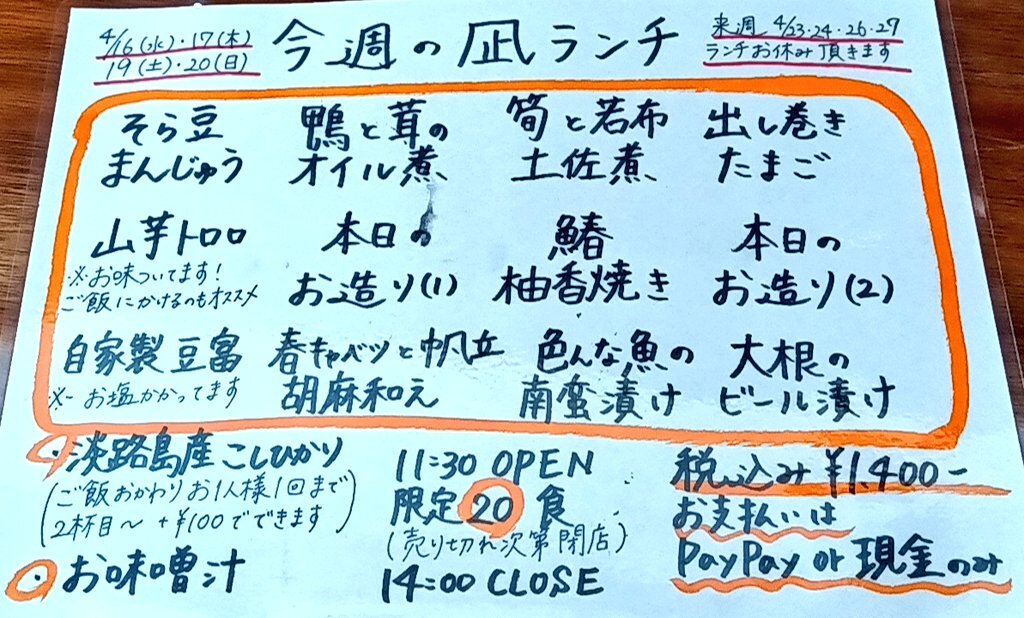 4/16(水)・17(木)
19(土)・20(日)
今週の凪ランチ
来週 4/23・24・26・27
ランチお休み頂きます
そら豆
まんじゅう
鴨と茸の
オイル煮
筍と若布
土佐煮
出し巻き
たまご
山芋トロロ
※お味ついてます!
ご飯にかけるのもオススメ
本日の
お造り(1)
鰆
柚香焼き
本日の
お造り(2)
自家製豆富
※お塩かかってます
春キャベツと帆立
胡麻和え
色んな魚の
南蛮漬け
大根の
ビール漬け
・淡路島産こしひかり
(ご飯おかわりお1人様1回まで
2杯目〜 +¥100でできます)
・お味噌汁
11:30 OPEN
限定 20 食
(売り切れ次第閉店)
14:00 CLOSE
税込み ¥1,400-
お支払いは
PayPay or 現金のみ